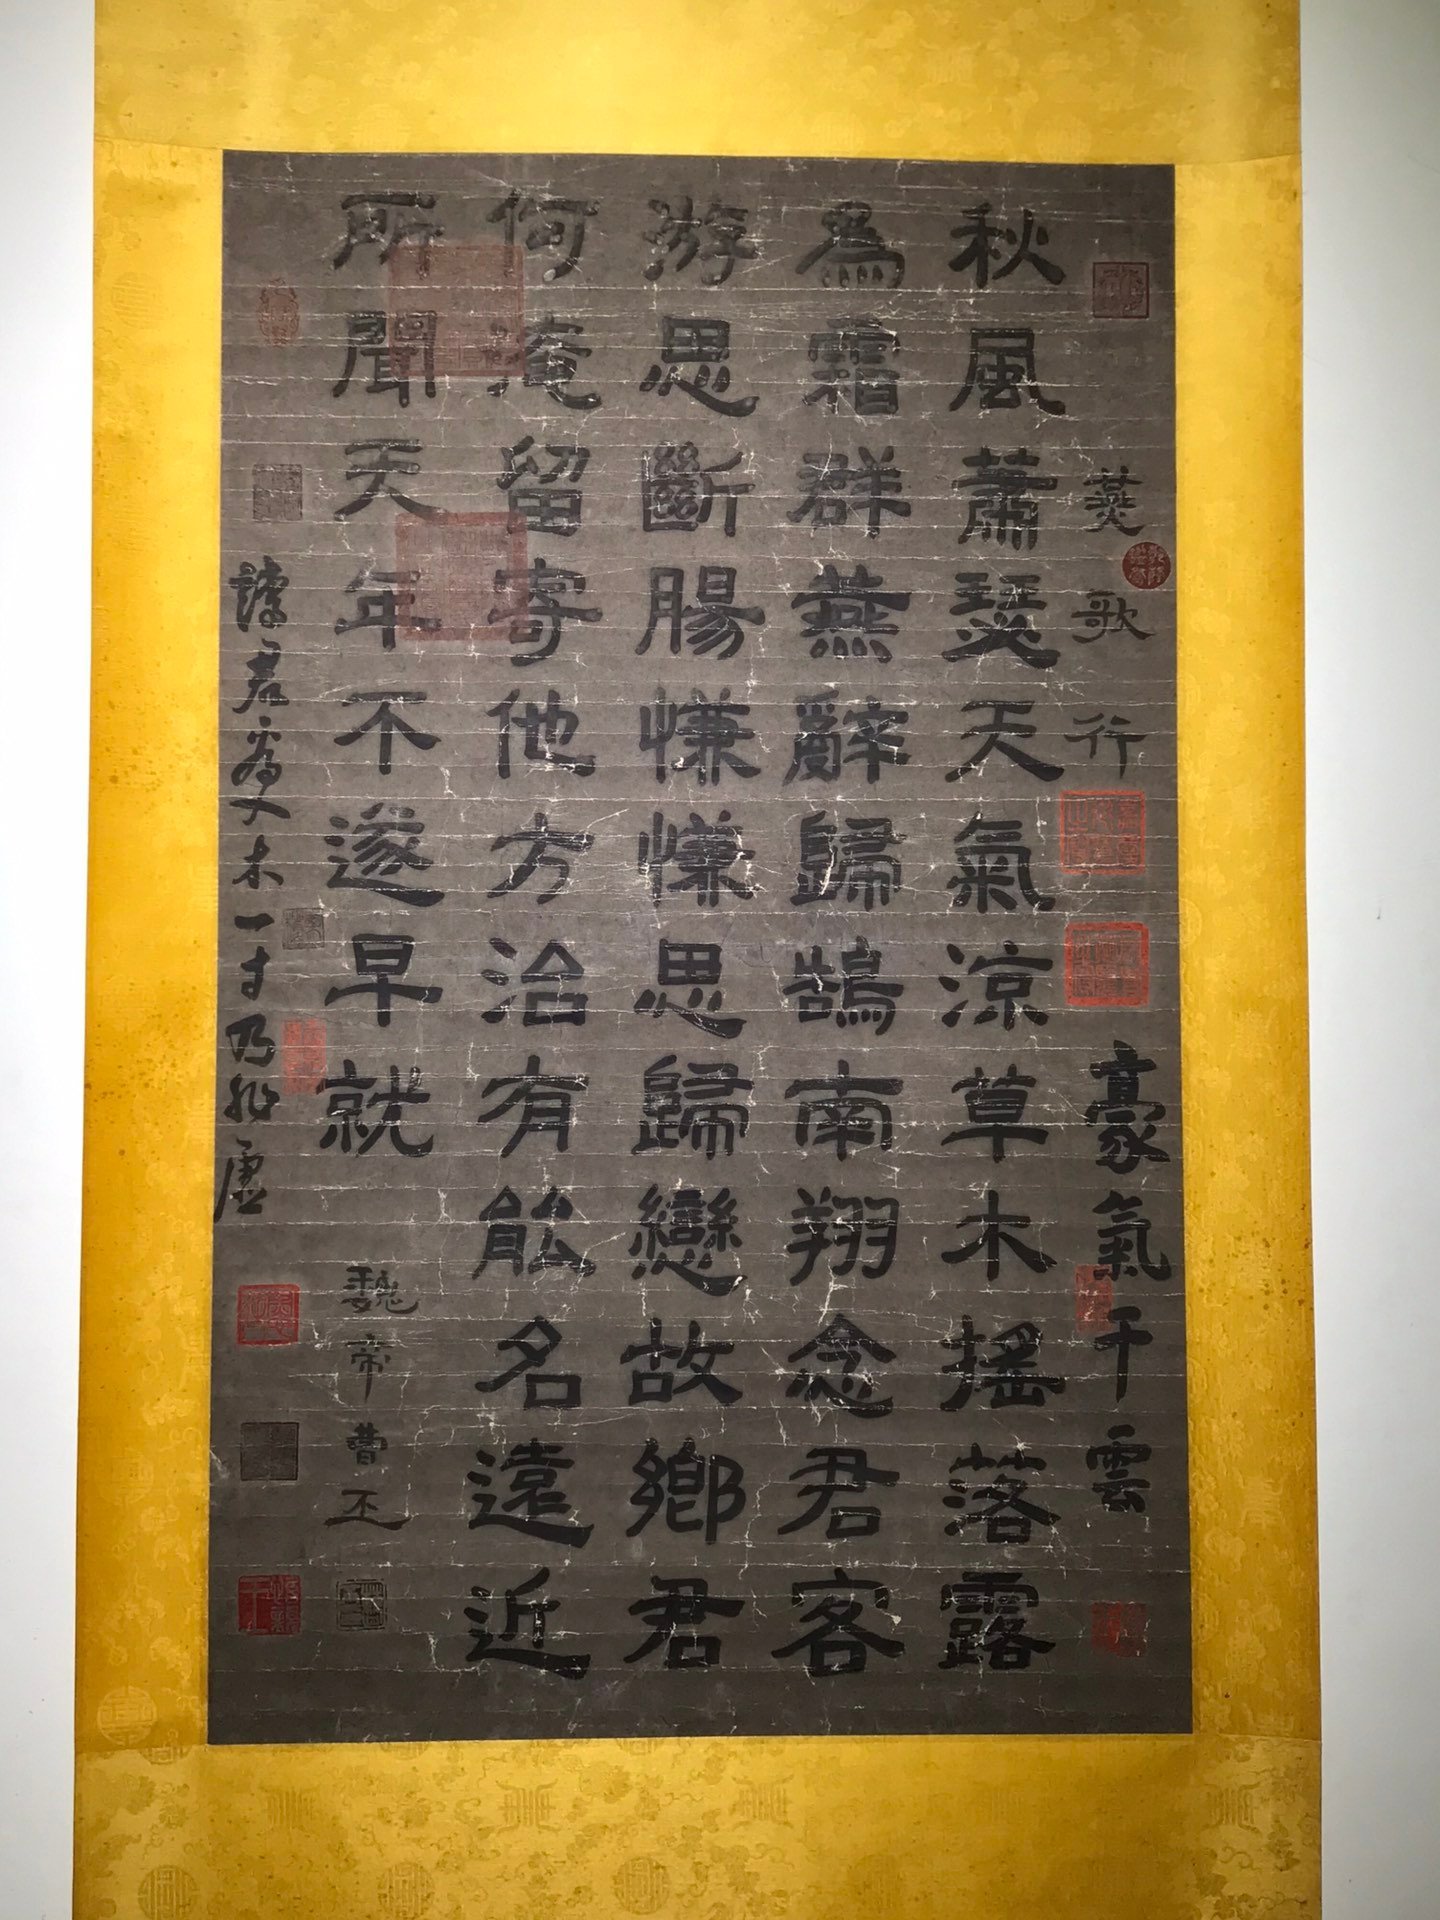 燕歌行
豪氣干雲
秋風蕭瑟天氣涼草木搖落露
為霜群燕辭歸鵠南翔念君客
游思斷腸慊慊思歸戀故鄉君
何淹留寄他方治有能名遠近
所聞天年不遂早就
魏帝曹丕
入木一寸乃非虛